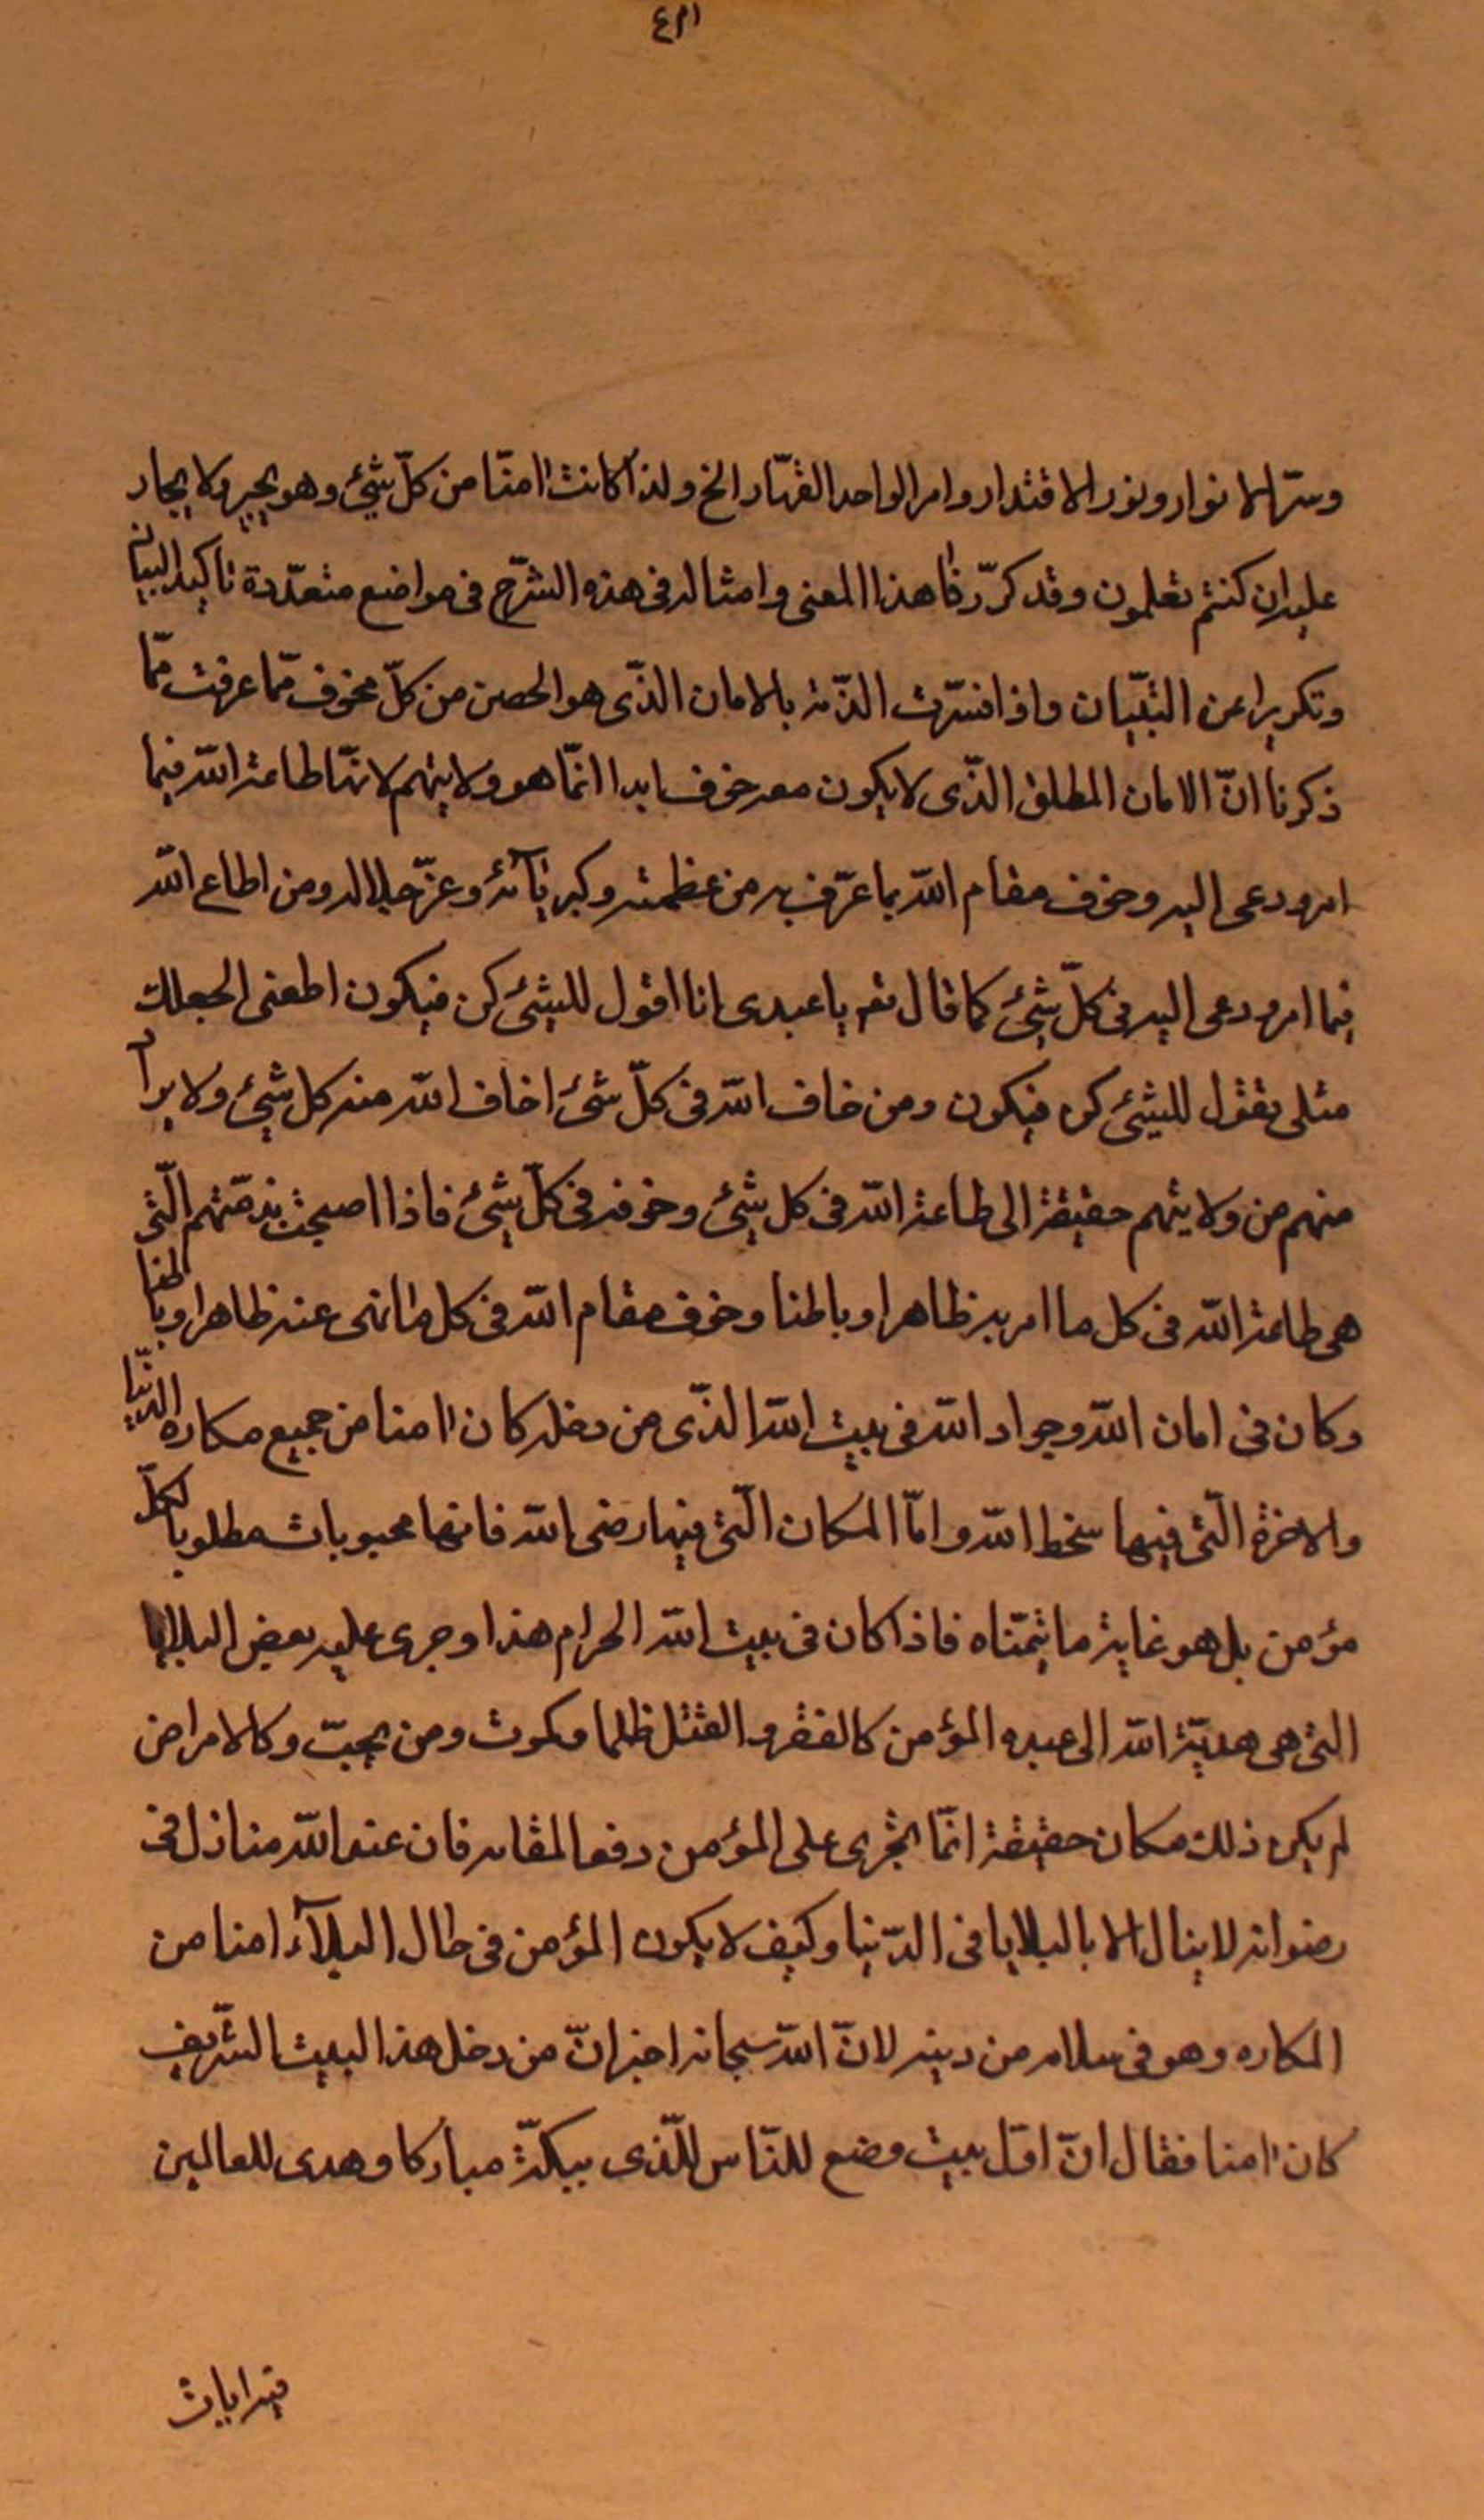 وسرّ الانوار ونور الاقتدار وامر الواحد القهّار الخ ولذا كانت امنا من كلّ شئ وهو يجير ولا يجار
عليه ان كنتم تعلمون وقد كرّرنا هذا المعنى وامثاله فى هذه الشرح فى مواضع متعدّدة تاكيد البيان
وتكريرا عن التبيّان واذا فسّرت الذّمة بالامان الذّى هو الحصن من كلّ مخوف ممّا عرفت ممّا
ذكرنا انّ الامان المطلق الذّى لا يكون معه خوف ابدا انمّا هو ولايتهم لانهّا طاعة الله فيما
امر ودعى اليه وخوف مقام الله بما عرّف به من عظمته وكبريآئه وعزّ جلاله ومن اطاع الله
فيما امر ودعى اليه فى كلّ شئ كما قال تعم يا عبدى انا اقول للشئ كن فيكون اطعنى اجعلك
مثلى تقول للشئ كن فيكون ومن خاف الله فى كلّ شئ اخاف الله منه كل شئ ولا يراد
منهم من ولايتهم حقيقة الى طاعة الله فى كل شئ وخوفه فى كلّ شئ فاذا اصبحت بذمّتهم الّتى
هى طاعة الله فى كل ما امر به ظاهرا وباطنا وخوف مقام الله فى كل ما نهى عنه ظاهرا وباطنا
وكان فى امان الله وجوار الله فى بيت الله الذّى من دخله كان امنا من جميع مكاره الدّنيا
والاخرة الّتى فيها سخط الله وامّا المكان الّتى فيها رضى الله فانها محبوبات مطلوبا لكلّ
مؤمن بل هو غاية ما يتمنّاه فاذا كان فى بيت الله الحرام هذا وجرى عليه بعض البلايا
التى هى هديّة الله الى عبده المؤمن كالفقر والقتل ظلما وكموت ومن يحبّ وكالامراض
لم يكن ذلك مكان حقيقة انمّا يجرى على المؤمن دفعا لمقامه فان عند الله منازل فى
رضوانه لا ينال الا بالبلايا فى الدّنيا وكيف لا يكون المؤمن فى حال البلآء امنا من
المكاره وهو فى سلامه من دينه لانّ الله سبحانه اخبر انّ من دخل هذا البيت الشّريف
كان امنا فقال انّ اوّل بيت وضع للنّاس للّذى ببكّة مباركا وهدى للعالمين
فيه ايات